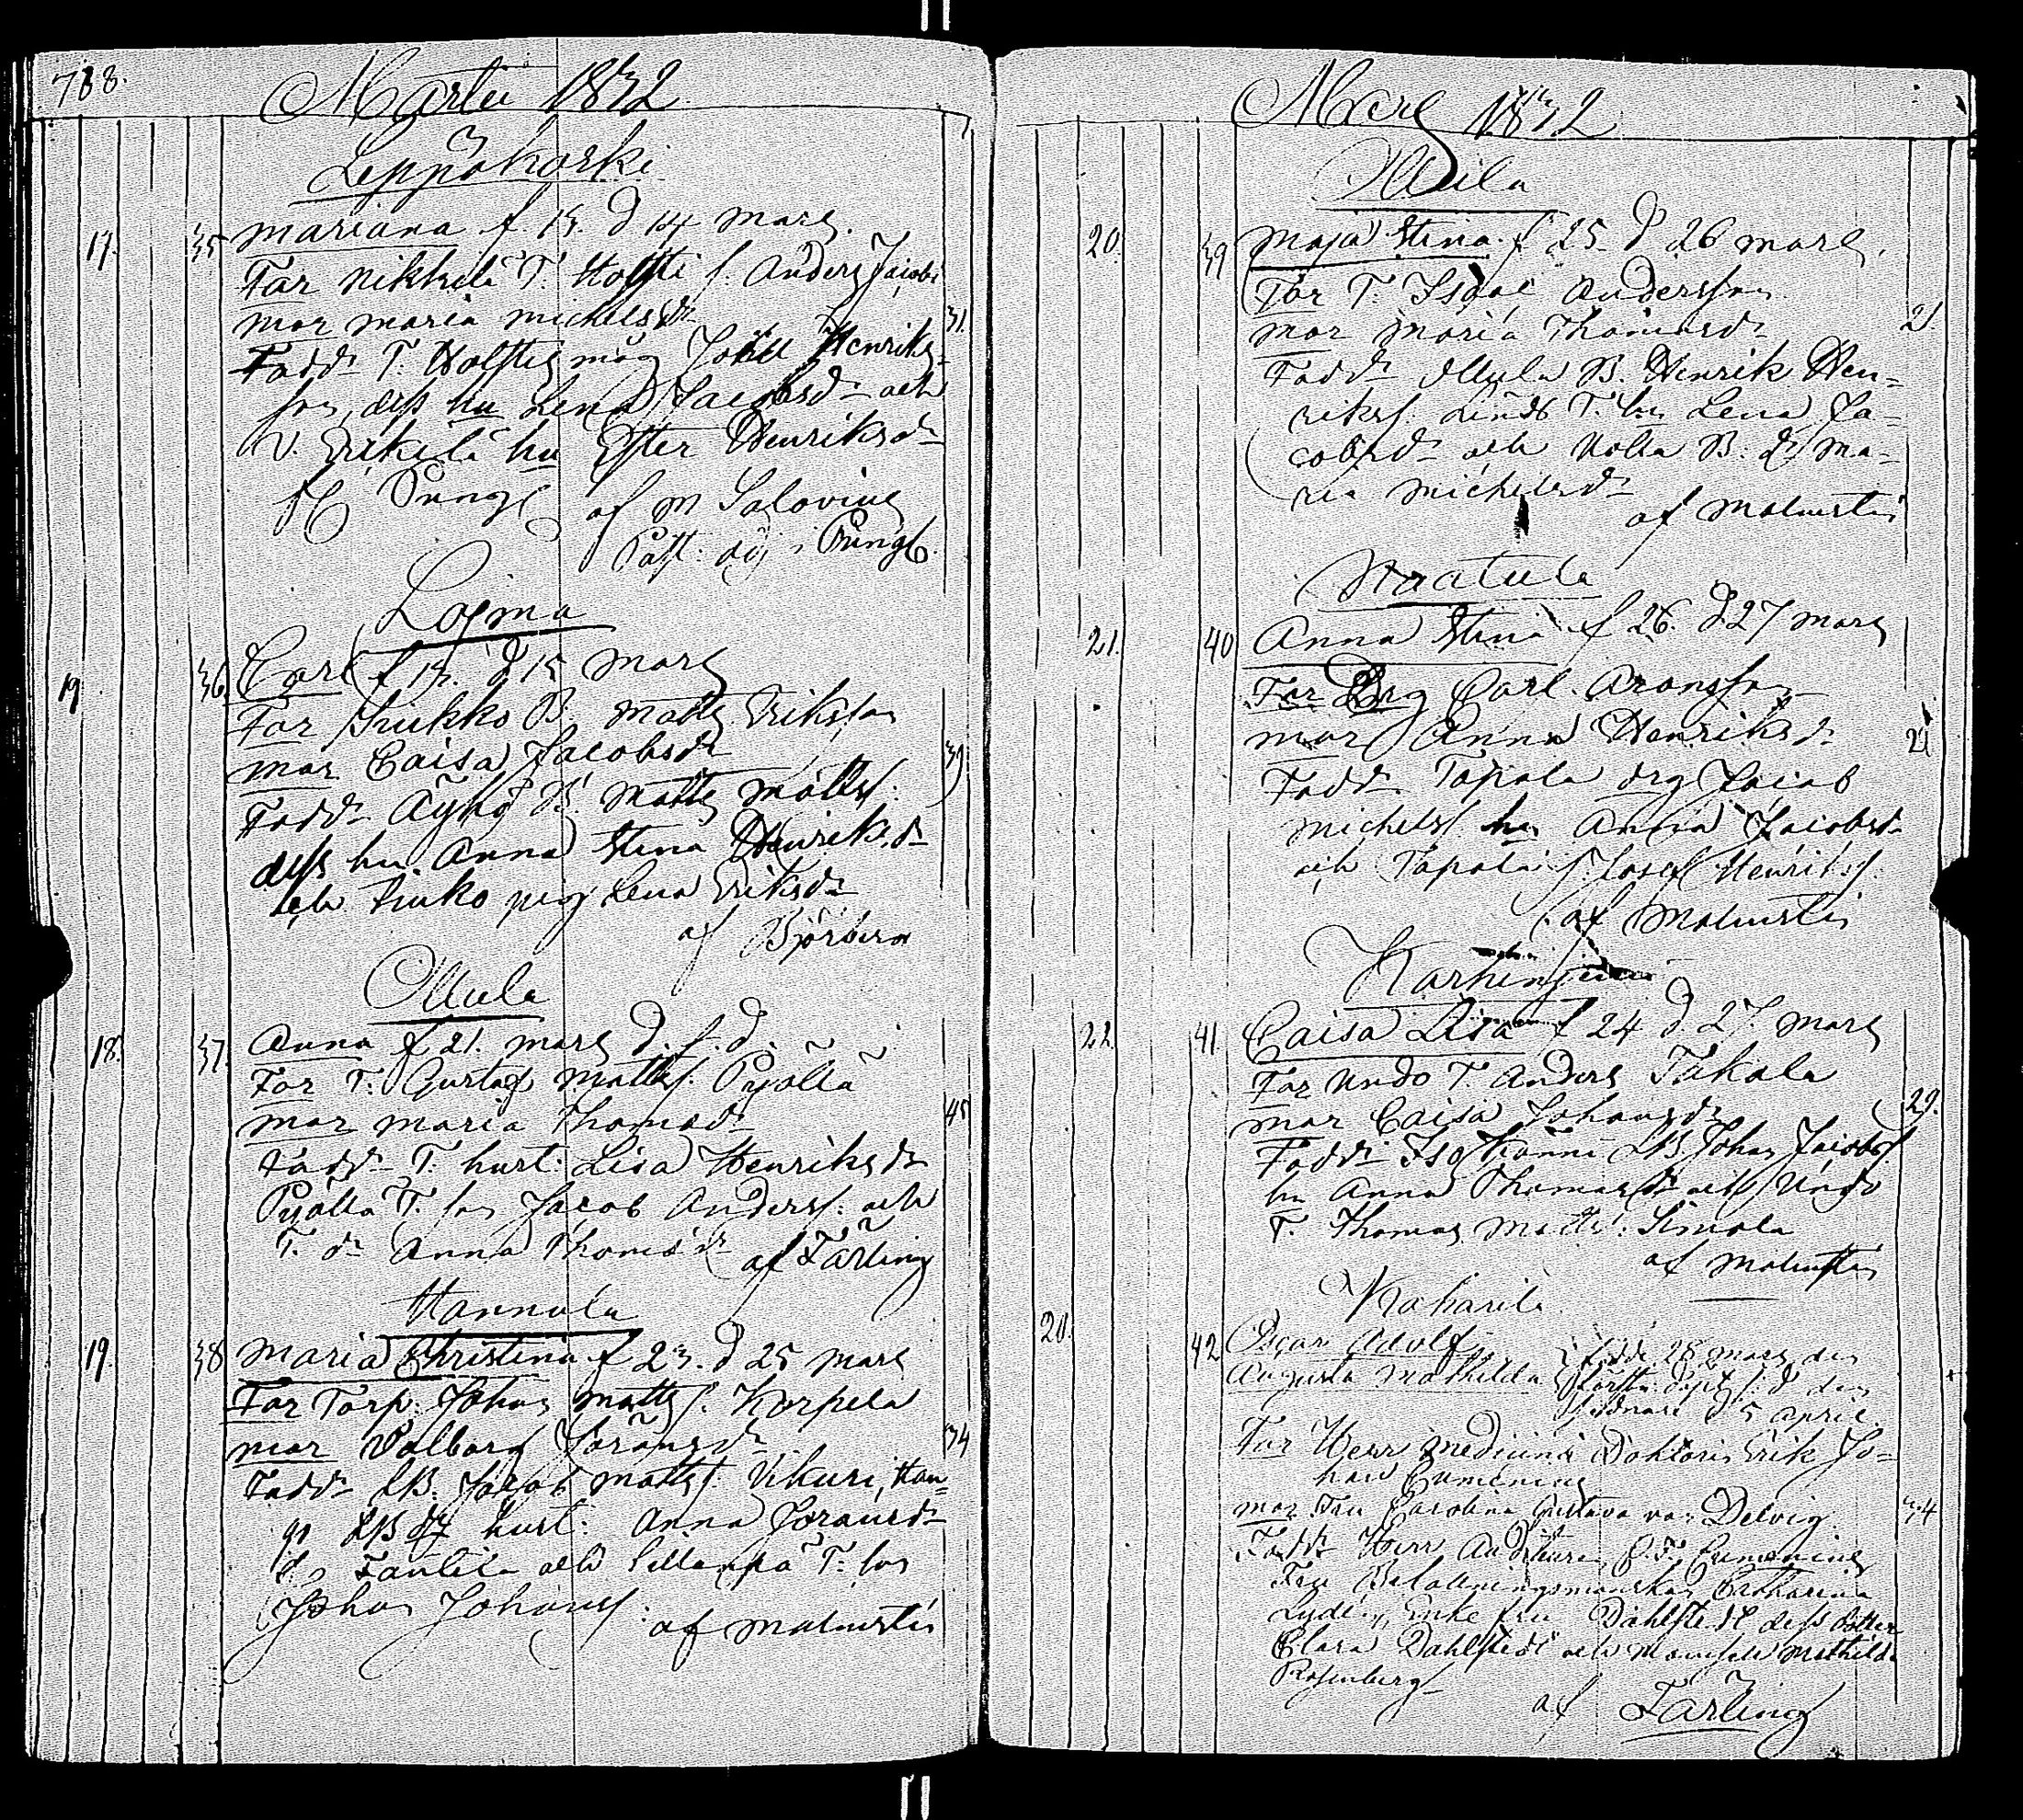 788.
Martii 1832
Leppäkoski
17. 35 Mariana f. 13. d 14 Mars.
Far Nikkilä T. Holsti f. Anders Jacobs
Mor Maria Michelsdr 31.
Fadd: T. Holstis måg Johan Henriks-
son, dess hu Lena Jacobsdr och
V. Erikilä hu Ester Henriksdr
af M Salovius
Past: adj i Pungb.
Lojma
19 36. Carl f 13. d 15 Mars
Far Kukko B. Matts Eriksson
Mor Caisa Jacobsdr 39
Fadd: Äyhö B. Matts Mattss:
dess hu Anna Stina Henriksdr
och pig Lena Eriksdr
af Björberg
Ollula
18. 37. Anna f 21. Mars d. s. d.
Far T. Gustaf Mattss. Pyölla
Mor Maria Thomasdr 45
Fadd: T. hust: Lisa Henriksdr
Pyölla T. son Jacob Anderss: och
T. dr Anna Thomasdr af Färling
Hannula
19. 38 Maria Christina f 23. d 25 Mars
Far Torp. Johan Mattss. Korpela
Mor Valborg Göransdr 34
Fadd: LB. Jacob Mattss. Vikuri, Han-
LB hust: Anna Göransdr
Tanlila och Sillanpä T: son
Johan Johanss:
af Malmstén
Mars 1832
Ollila
20. 39 Maja Stina f 25 d 26 Mars.
Far T. Isaac Andersson
Mor Maria Thomasdr 21.
Fadd: Ollula B. Henrik Hen-
rikss. T. hu Lena Ja-
cobsdr och Nolla B: dr Ma-
ria Michelsdr
af Malmstén
21. 40 Anna Stina f 26. d 27 Mars
Far Drg Carl Aronsson
Mor Anna Henriksdr 21
Fadd: Tapola drg Jacob
Michelss hu Anna Jacobsdr
och Tapola Josef Henrikss.
af Malmstén
Karhinjemi
22. 41 Caisa Lisa f 24 d. 27. Mars
Far Undo T. Anders Takala
Mor Caisa Johansdr 29.
Fadd: Iso Känni LB Johan Jacobs.
hu Anna Thomasdr och Undo
T. Thomas Matts: Simola
af Malmstén
Kaharila
20. 42 Oscar Adolf,
Augusta Mathilda födde 28 Mars den
förstn: döpt s: d: den
sednare d 5 April.
Far Herr Medicinæ Doktorn Erik Jo-
han Cumenius
Mor Fru Carolina Gustava von Delvig 34
Fadd: Herr Auditeuren Cumenius
Fru Befallningsmanskan Catharina
Lydén, Enke fru Dahlstedt dess dotter
Clara Dahlstedt och Mamsell Mathilda
Rosenberg
af Färling